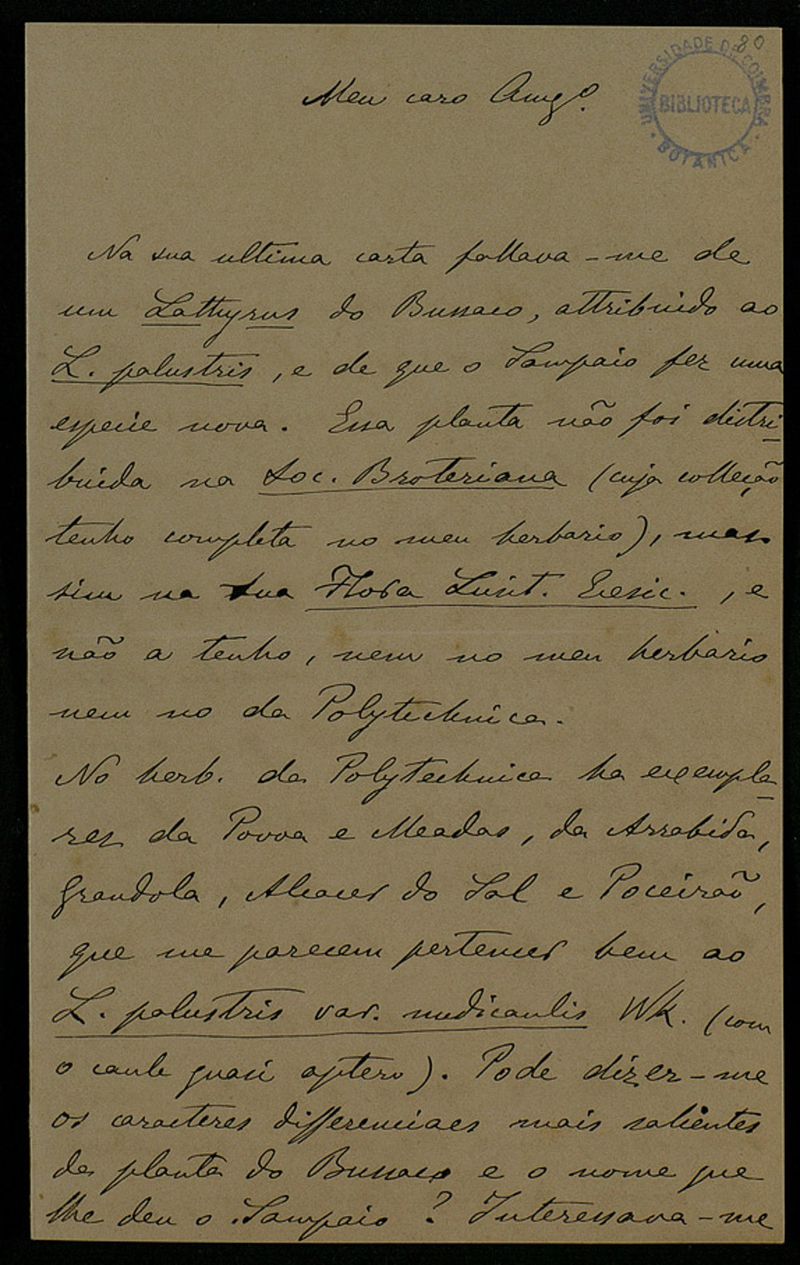 80
UNIVERSIDADE DE COIMBRA
BIBLIOTECA
BOTANICA
Meu caro Amgo.
Na sua ultima carta fallava-me de
um Lathyrus do Bussaco, attribuido ao
L. palustris, e de que o Sampaio fez uma
especie nova. Essa planta não foi distri-
buida na Soc. Broteriana (cuja collecção
tenho completa no meu herbario), mas
sim na sua Flora Lusit. Exsic., e
não a tenho, nem no meu herbario
nem no da Polytechnica.
No herb. da Polytechnica ha exempla-
res da Povoa e Meadas, da Arrabida,
Grandola, Alcacer do Sal e Poceirão,
que me parecem pertencer bem ao
L. palustris var. nudicaulis Wk. (com
o caule quasi aptero). Pode dizer-me
os caracteres differenciaes mais salientes
da planta do Bussaco e o nome que
lhe deu o Sampaio? Interessava-me